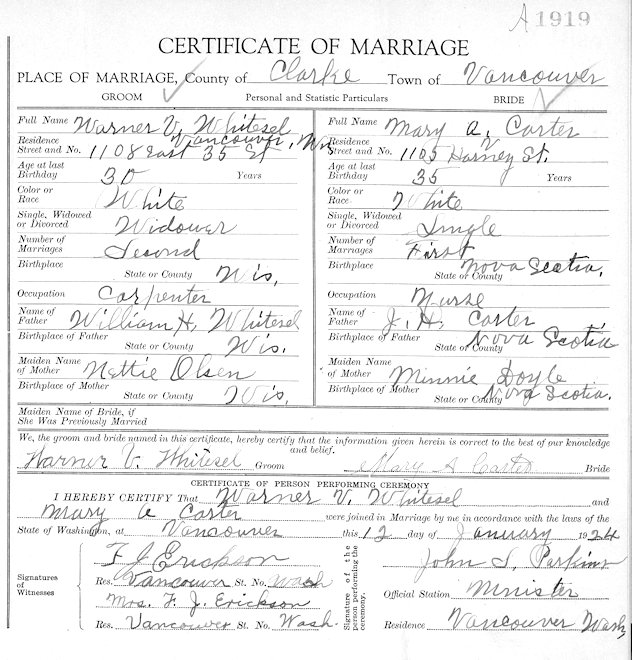 A 1919
CERTIFICATE OF MARRIAGE
PLACE OF MARRIAGE, County of Clarke Town of Vancouver
GROOM Personal and Statistic Particulars BRIDE
Full Name Warner V. Whitesel
Residence Vancouver, Wn
Street and No. 1108 East 35 St
Age at last
Birthday 30 Years
Color or
Race White
Single, Widowed
or Divorced Widower
Number of
Marriages Second
Birthplace
State or County Wis.
Occupation Carpenter
Name of
Father William H. Whitesel
Birthplace of Father
State or County Wis.
Maiden Name
of Mother Nettie Olsen
Birthplace of Mother
State or County Wis.
Full Name Mary A. Carter
Residence V
Street and No. 1105 Harney St.
Age at last
Birthday 35 Years
Color or
Race White
Single, Widowed
or Divorced Single
Number of
Marriages First
Birthplace
State or County Nova Scotia.
Occupation Nurse
Name of
Father J. H. Carter
Birthplace of Father
State or County Nova Scotia
Maiden Name
of Mother Minnie Doyle
Birthplace of Mother
State or County Nova Scotia.
Maiden Name of Bride, if
She Was Previously Married
We, the groom and bride named in this certificate, hereby certify that the information given herein is correct to the best of our knowledge
and belief.
Warner V. Whitesel Groom Mary A Carter Bride
CERTIFICATE OF PERSON PERFORMING CEREMONY
I HEREBY CERTIFY That Warner V. Whitesel and
Mary A Carter were joined in Marriage by me in accordance with the laws of the
State of Washington, at Vancouver this 12 day of January 1924
Signatures
of
Witnesses
F J Erickson
Res. Vancouver St. No. Wash
Mrs. F. J. Erickson
Res. Vancouver St. No. Wash.
Signature of the
person performing the
ceremony.
John S. Perkins
Official Station Minister
Residence Vancouver Wash